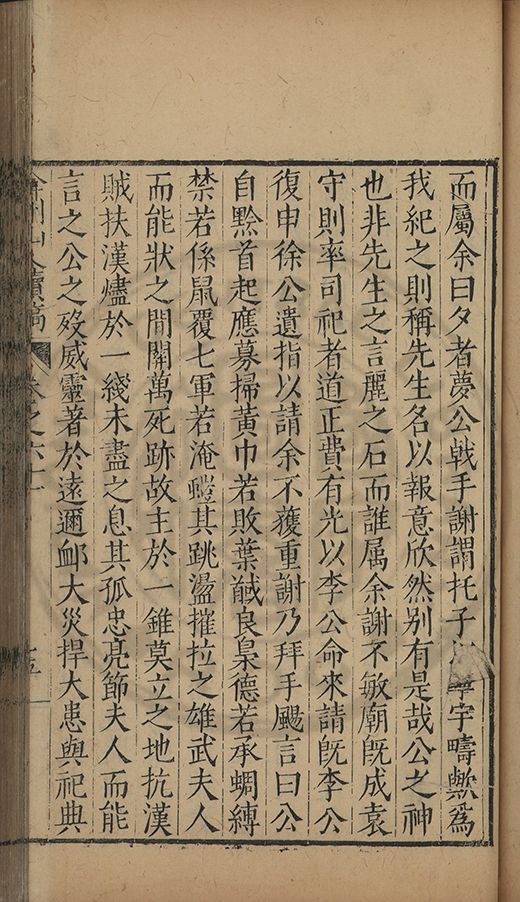 而屬余曰夕者夢公戟手謝謂托子
宇疇歟爲
我紀之則稱先生名以報意欣然别有是哉公之神
也非先生之言麗之石而誰屬余謝不敏廟旣成袁
守則率司祀者道正費有光以李公命來請旣李公
復申徐公遺指以請余不獲重謝乃拜手颺言曰公
自黔首起應募掃黃巾若敗葉馘良梟德若承蜩縛
禁若係鼠覆七軍若淹螘其跳盪摧拉之雄武夫人
而能狀之間關萬死跡故主於一錐莫立之地抗漢
賊扶漢燼於一綫未盡之息其孤忠亮節夫人而能
言之公之歿威靈著於遠邇䘏大災捍大患與祀典
續稿
卷之六十